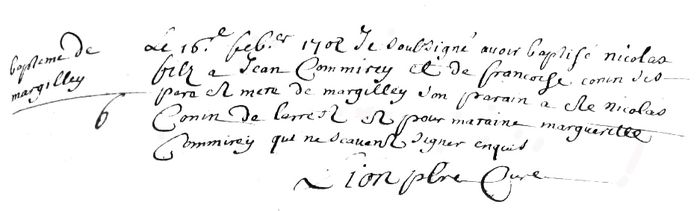 bapteme de
margilley
6
Le 16.e feb.er 1702 Je soussigné avoir baptisé nicolas
filz a Jean Commirey et de francoise conin ses
pere et mere de margilley son parain a ete nicolas
Conin de larret et pour maraine margueritte
Commirey qui ne scavent signer enquis
Lion pbre Cure